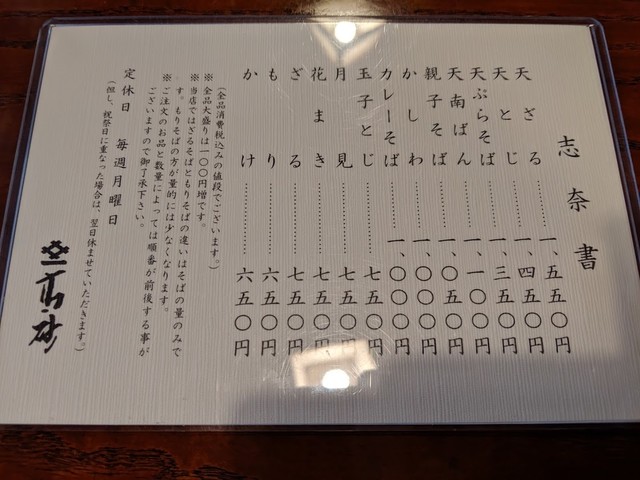 志奈書
天ざる…………一、五五〇円
天とじ…………一、四五〇円
天ぷらそば……一、三五〇円
天南ばん………一、一〇〇円
親子そば………一、〇五〇円
かしわ…………一、〇〇〇円
カレーそば……一、〇〇〇円
玉子とじ…………七五〇円
月見………………七五〇円
花まき……………七五〇円
ざる………………七五〇円
もり………………六五〇円
かけ………………六五〇円
(全品消費税込みの値段でございます。)
※全品大盛りは一〇〇円増です。
※当店ではざるそばともりそばの違いはそばの量のみで
す。もりそばの方が量的には少なくなります。
※ご注文のお品と数量によっては順番が前後する事が
ございますので御了承下さい。
定休日 毎週月曜日
(但し、祝祭日に重なった場合は、翌日休ませていただきます。)